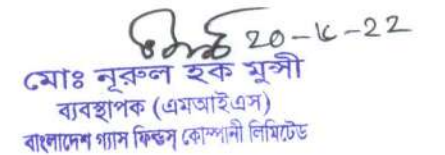 20-৮-22
মোঃ নূরুল হক মুন্সী
ব্যবস্থাপক (এমআইএস)
বাংলাদেশ গ্যাস ফিল্ডস্ কোম্পানী লিমিটেড